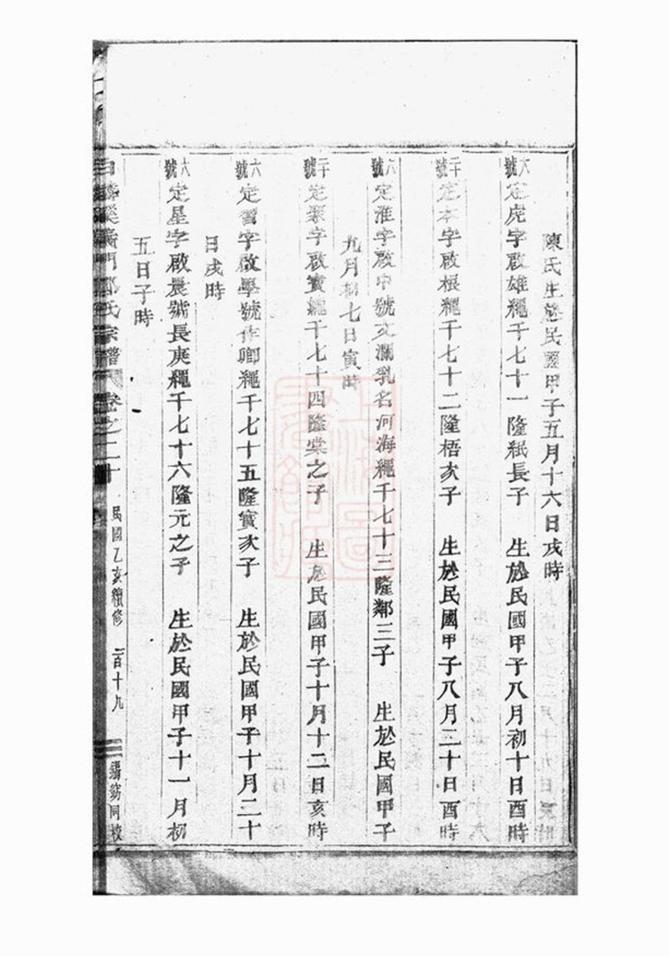 陳氏生於民國甲子五月十六日戌時
六號 定虎字啟雄繩千七十一隆紙長子 生於民國甲子八月初十日酉時
二十號 定本字啟根繩千七十二隆梧次子 生於民國甲子八月三十日酉時
六號 定淮字啟中號文瀾乳名河海繩千七十三隆鄰三子 生於民國甲子
九月初七日寅時
二十號 定 字啟實繩千七十四隆棠之子 生於民國甲子十月十二日亥時
六號 定習字啟學號作卿繩千七十五隆實次子 生於民國甲子十月二十
日戌時
六號 定星字啟晨號長庚繩千七十六隆元之子 生於民國甲子十一月初
五日子時
白麟溪義門鄭氏宗譜 卷之二十 民國乙亥續修 二百十九 同校